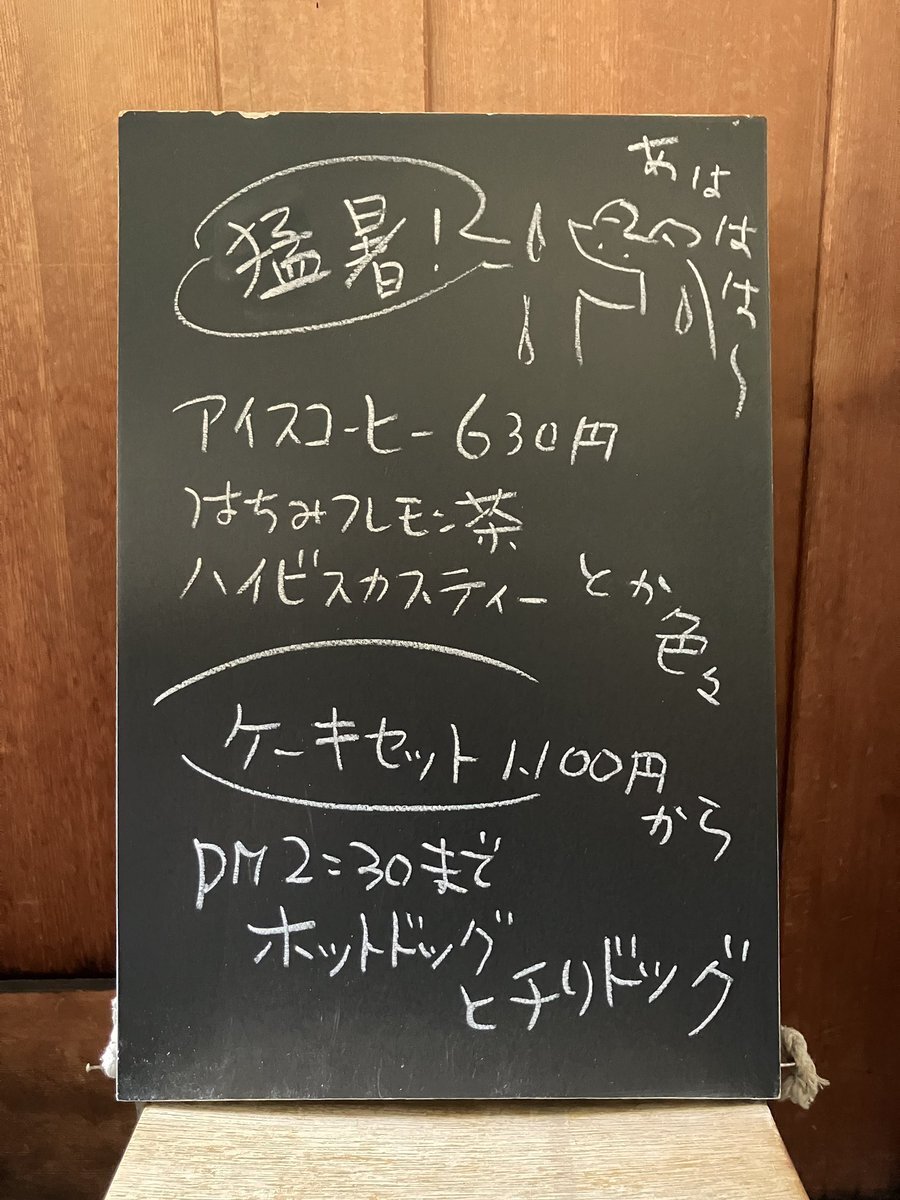 猛暑!?
あははは〜
アイスコーヒー630円
はちみつレモン茶
ハイビスカスティー とか
色々
ケーキセット 1,100円
から
PM2:30まで
ホットドッグ
とチリドッグ